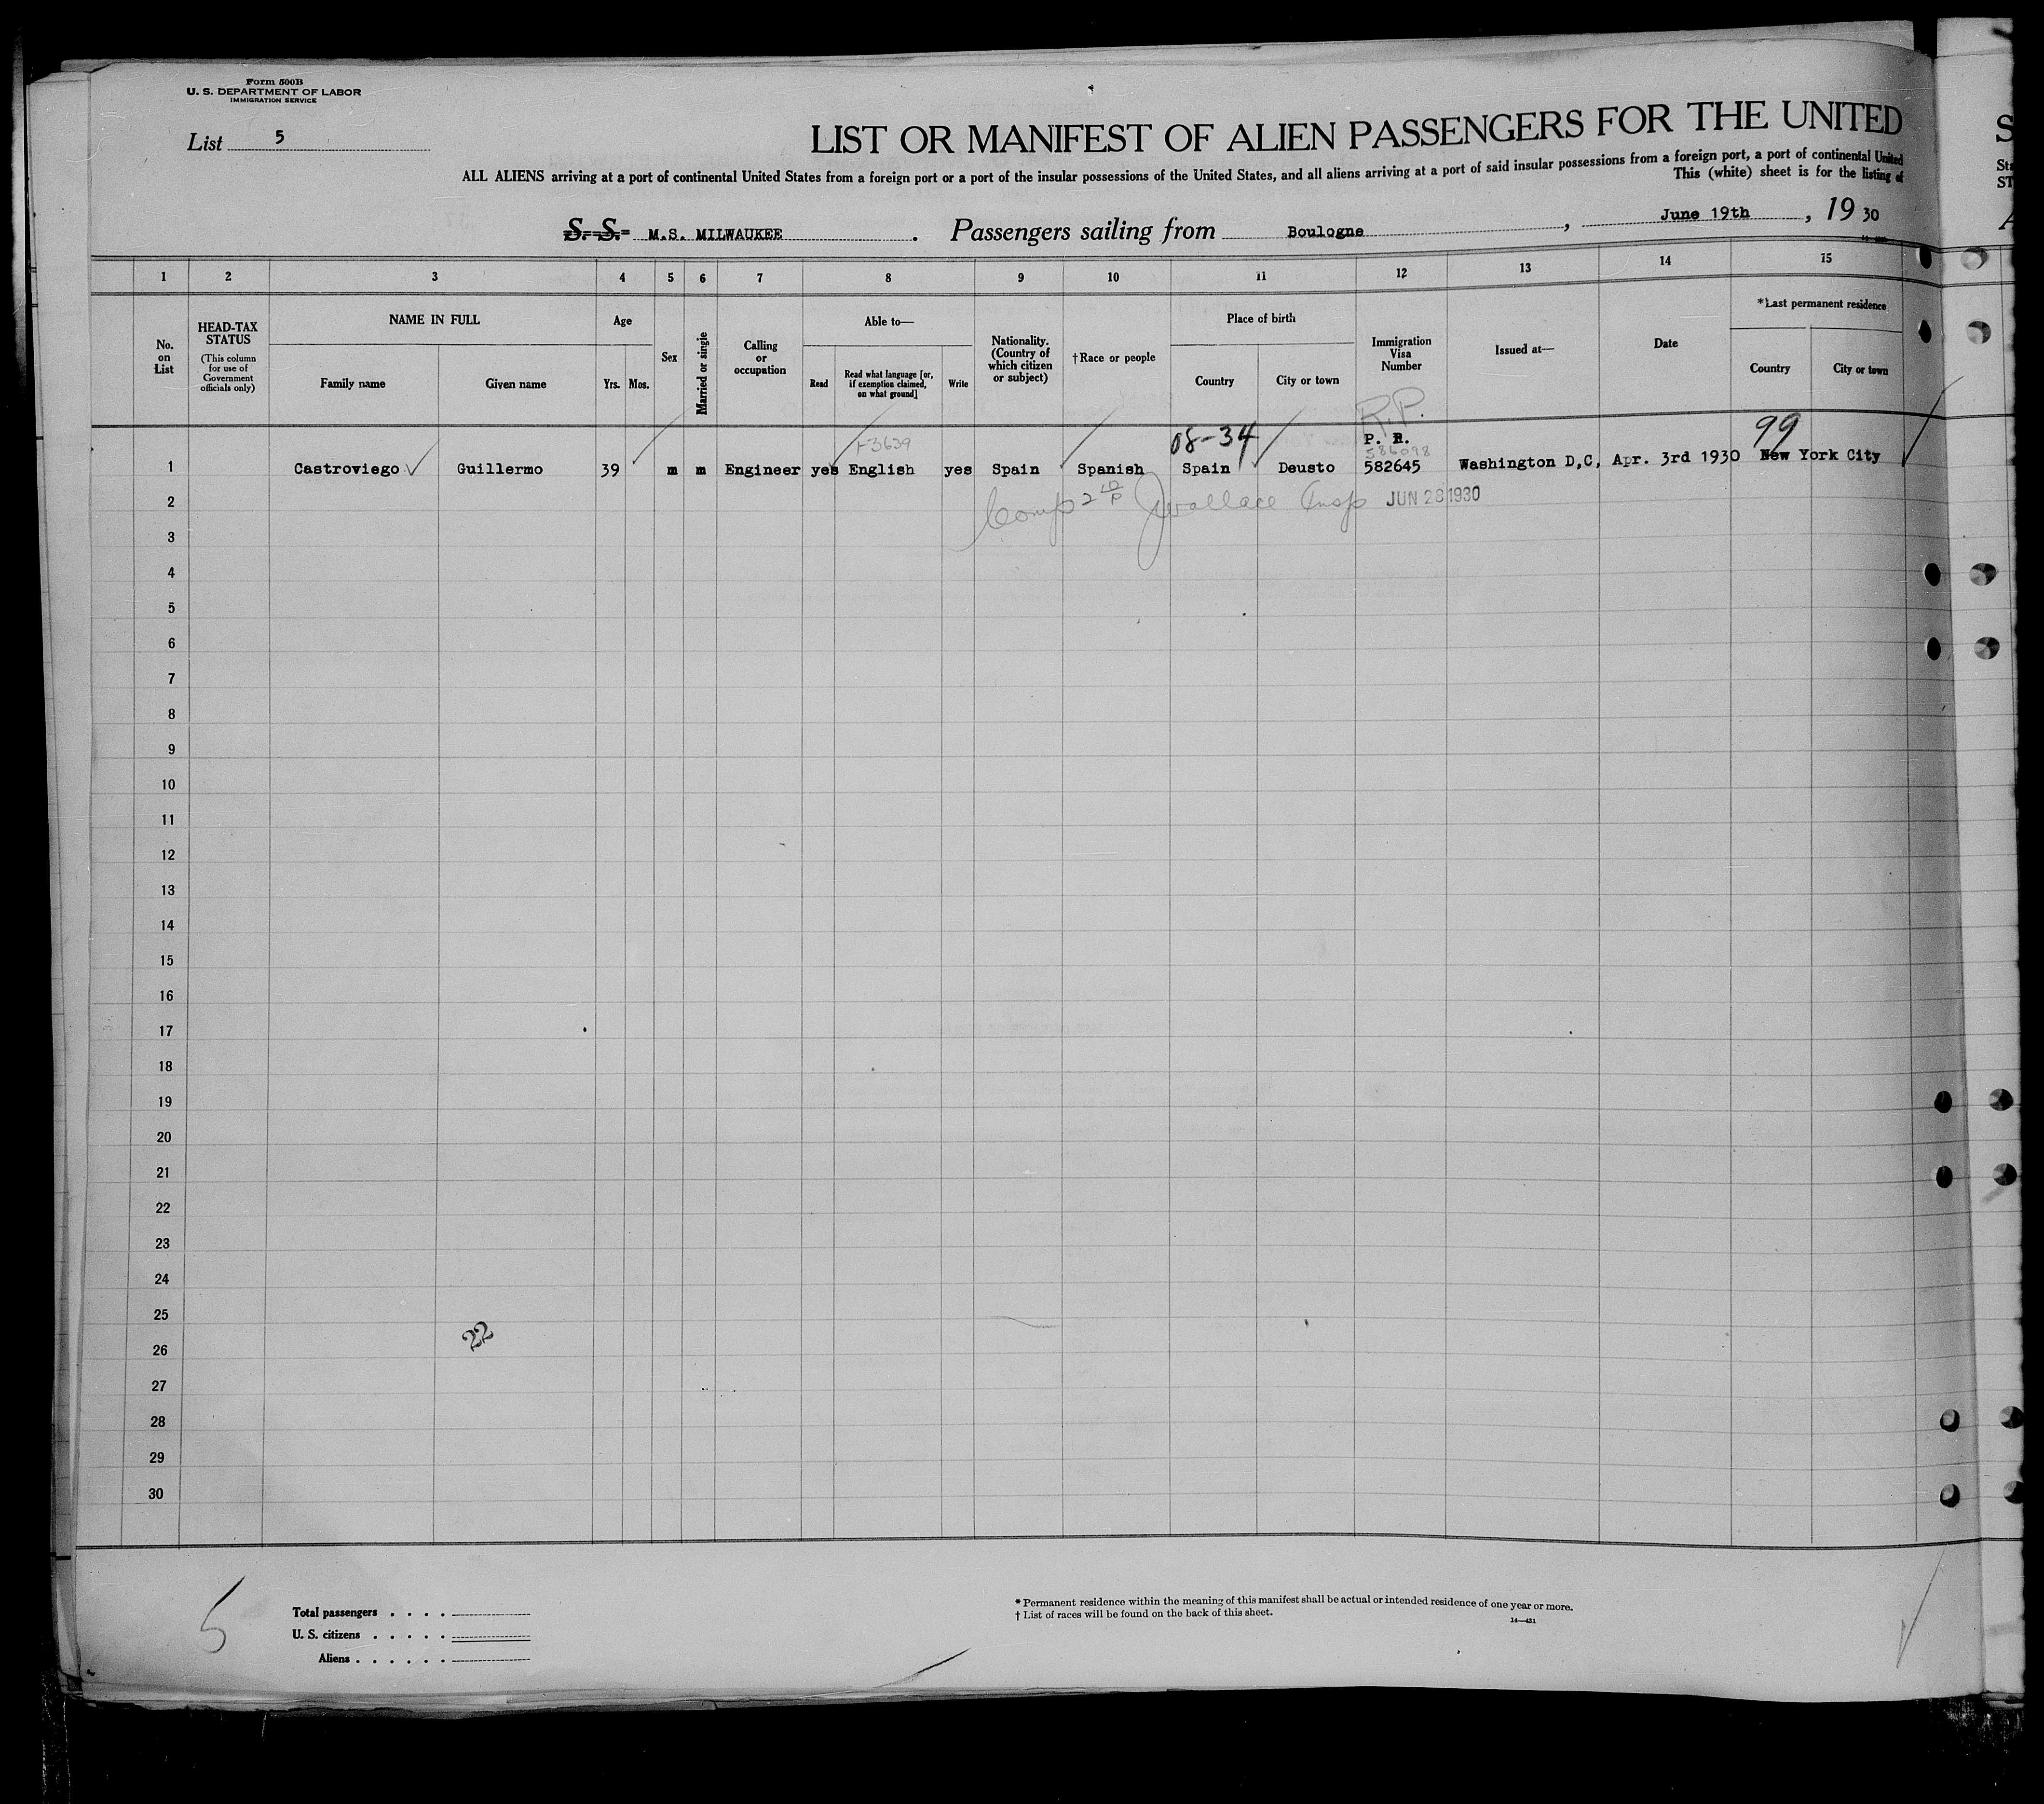 Form 500B
U. S. DEPARTMENT OF LABOR
IMMIGRATION SERVICE
List 5
LIST OR MANIFEST OF ALIEN PASSENGERS FOR THE UNITED
S
ALL ALIENS arriving at a port of continental United States from a foreign port or a port of the insular possessions of the United States, and all aliens arriving at a port of said insular possessions from a foreign port, a port of continental United
Sta
This (white) sheet is for the listing of
ST
S. S. M.S. MILWAUKEE . Passengers sailing from Boulogne , June 19th , 19 30
1 2 3 4 5 6 7 8 9 10 11 12 13 14 15
No. on List
HEAD-TAX STATUS
(This column for use of Government officials only)
NAME IN FULL
Family name Given name
Age
Yrs. Mos.
Sex
Married or single
Calling or occupation
Able to—
Read
Read what language [or, if exemption claimed, on what ground]
Write
Nationality. (Country of which citizen or subject)
†Race or people
Place of birth
Country City or town
Immigration Visa Number
Issued at—
Date
*Last permanent residence
Country City or town
R.P.
+3639 08-34 P. R. 99
586098
1 Castroviego Guillermo 39 m m Engineer yes English yes Spain Spanish Spain Deusto 582645 Washington D,C, Apr. 3rd 1930 New York City
2 Comp JWallace Insp JUN 28 1930
3
4
5
6
7
8
9
10
11
12
13
14
15
16
17
18
19
20
21
22
23
24
25
22
26
27
28
29
30
5
Total passengers . . . .
U. S. citizens . . . . .
Aliens . . . . . .
* Permanent residence within the meaning of this manifest shall be actual or intended residence of one year or more.
† List of races will be found on the back of this sheet.
14—431